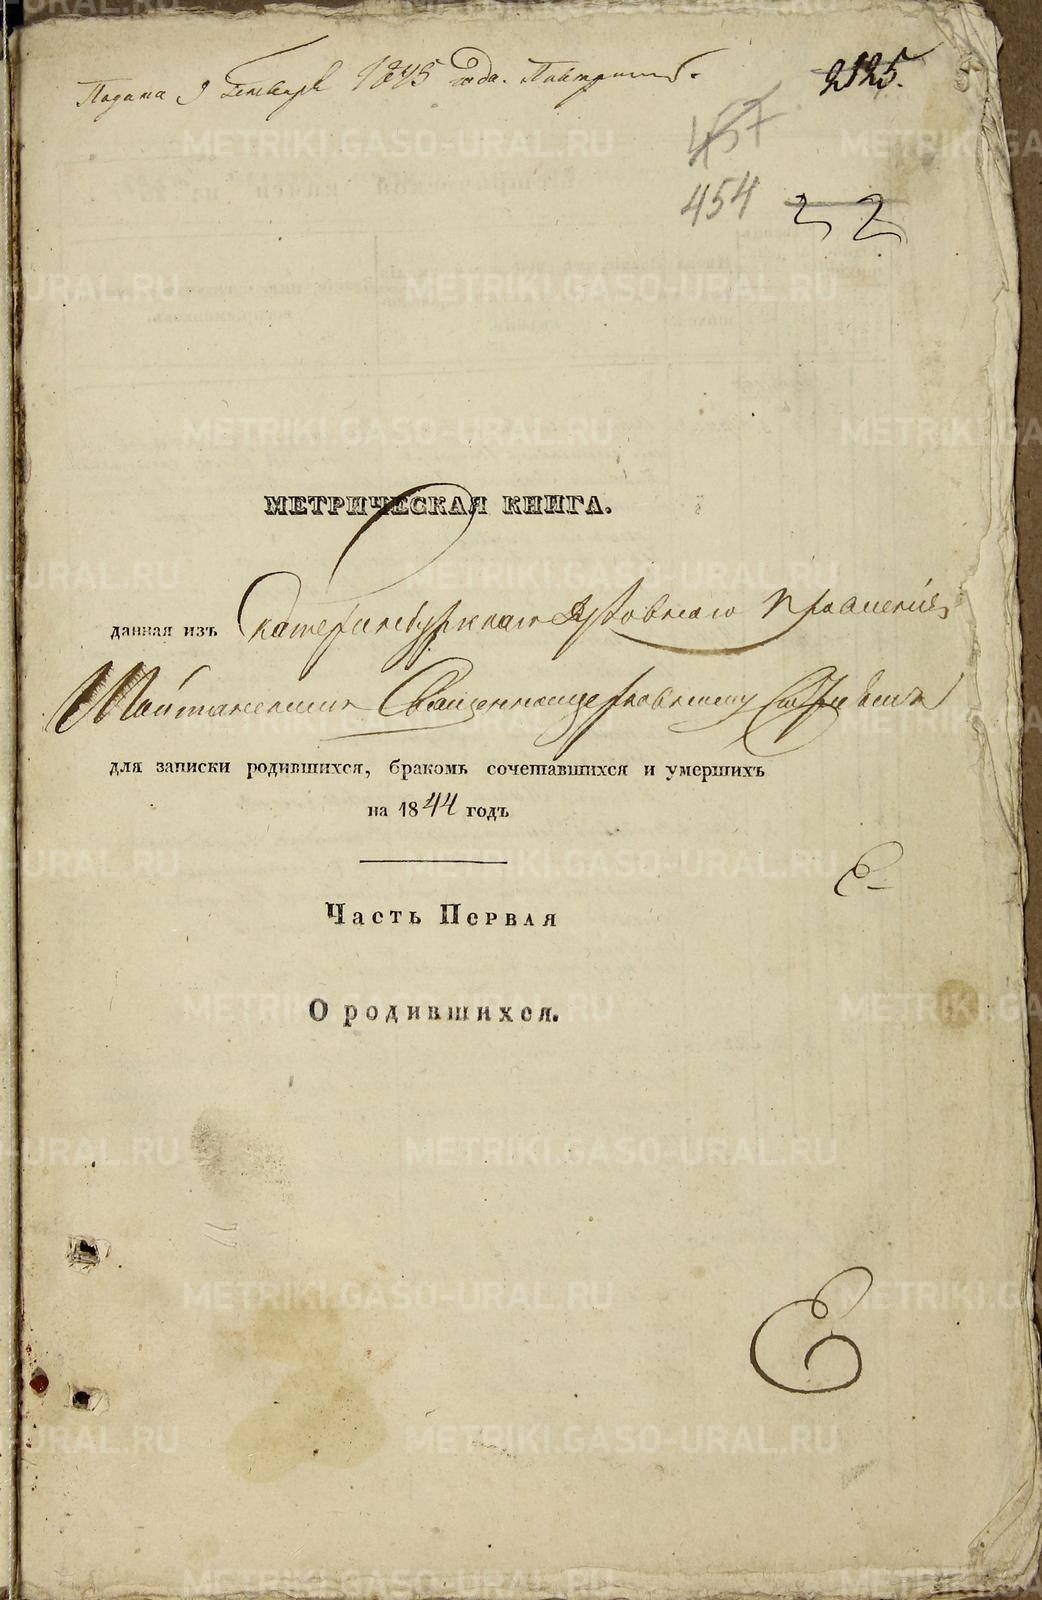 Подана 9 Генваря 1845 года.
2125.
457
454
22
МЕТРИЧЕСКАЯ КНИГА.
данная изъ Екатеринбургскаго Духовнаго Правленія
Шайтанскимъ Священноцерковнослужителямъ
для записки родившихся, бракомъ сочетавшихся и умершихъ
на 1844 годъ
Часть Первая
О родившихся.
METRIKI.GASO-URAL.RU